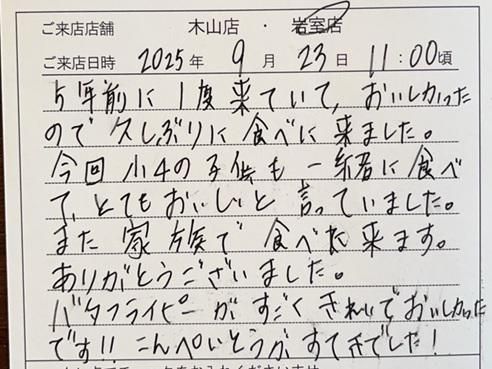 ご来店店舗 木山店 ・ 岩室店
ご来店日時 2025年 9月 23日 11:00頃
5年前に1度来ていて、おいしかった
ので久しぶりに食べに来ました。
今回小4の子供も一緒に食べ
て、とてもおいしいと言っていました。
また家族で食べに来ます。
ありがとうございました。
バタフライピーがすごくきれいでおいしかった
です!! こんぺいとうがすてきでした!